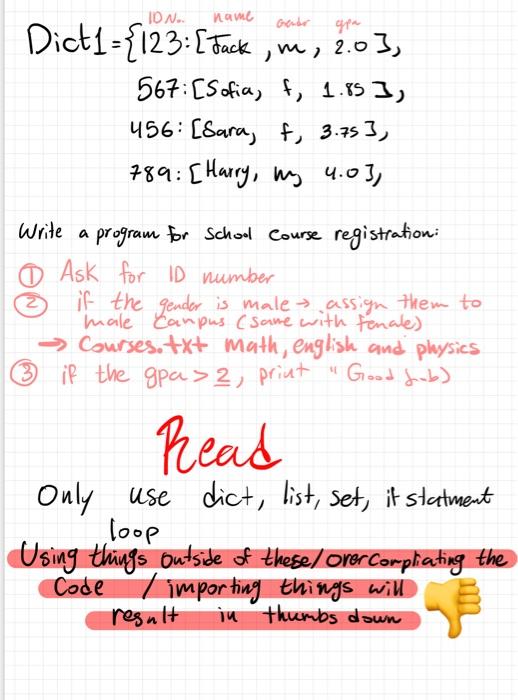 ID No. name gender gpa
Dict1={123:[Jack ,m, 2.0],
567:[Sofia, f, 1.85],
456:[Sara, f, 3.75],
789:[Harry, m, 4.0],
Write a program for School Course registration:
① Ask for ID number
② if the gender is male → assign them to
male campus (same with female)
→ Courses.txt math, english and physics
③ if the gpa > 2, print " Good job)
Read
Only use dict, list, set, if statment
loop
Using things outside of these/overcompliating the
Code / importing things will
result in thumbs down